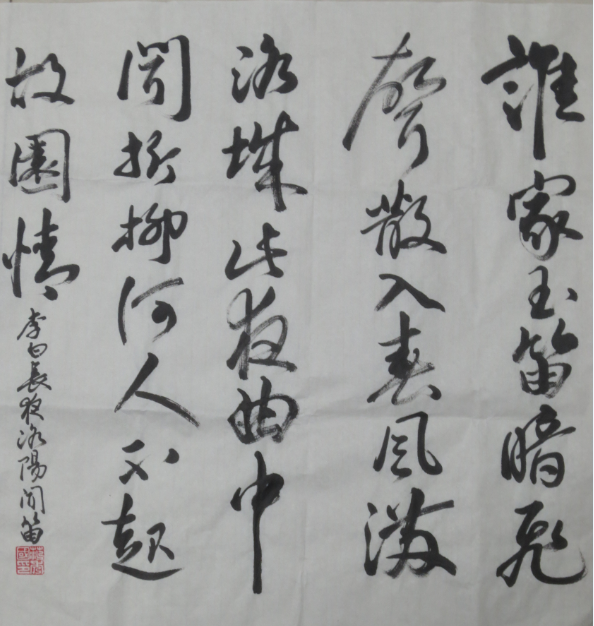 誰家玉笛暗飛
聲散入春風滿
洛城此夜曲中
聞折柳何人不起
故園情
李白長夜洛陽聞笛